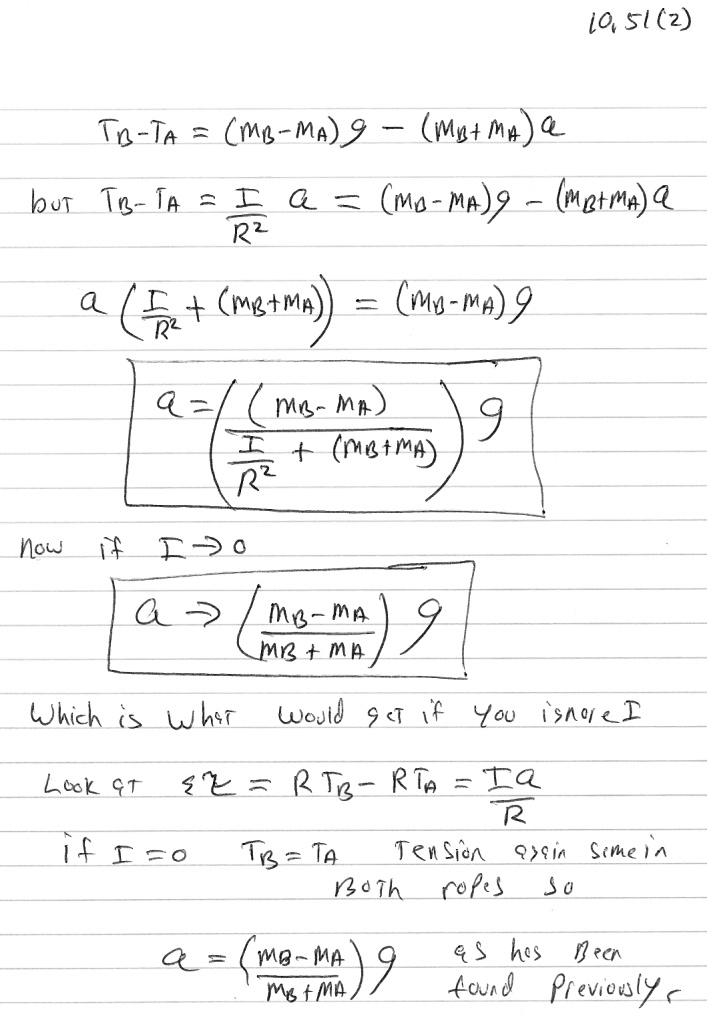 10,51(2)
TB-TA = (MB-MA)g - (MB+MA)a
but TB-TA = I/R² a = (MB-MA)g - (MB+MA)a
a(I/R² + (MB+MA)) = (MB-MA)g
a = ((MB-MA)/(I/R² + (MB+MA)))g
Now if I→0
a → (MB-MA/MB+MA)g
Which is what would get if you ignore I
Look at Στ = RTB - RTA = Ia/R
if I=0 TB=TA Tension again same in
Both ropes so
a = (MB-MA/MB+MA)g as has Been
found Previously.